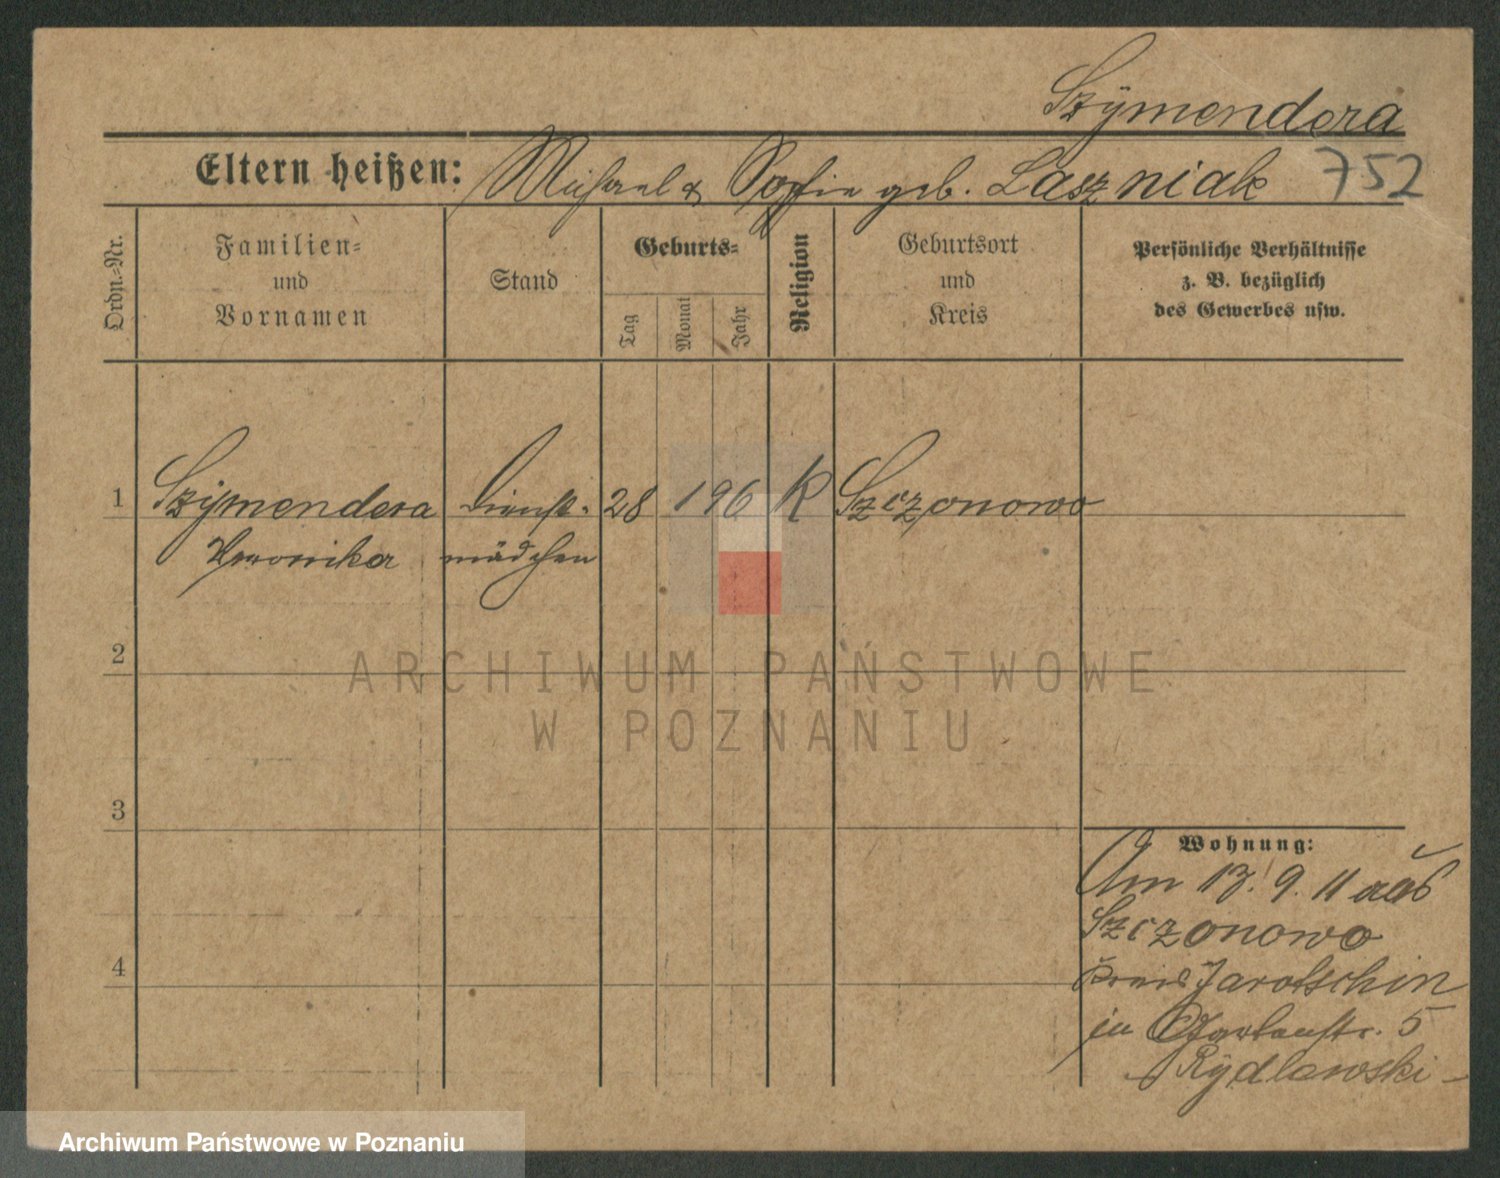 Szÿmendera
Eltern heißen: Michael & Sofie geb. Laszniak 752
Ordn.-Nr.
Familien-
und
Vornamen
Stand
Geburts-
Tag
Monat
Jahr
Religion
Geburtsort
und
Kreis
Persönliche Verhältnisse
z. B. bezüglich
des Gewerbes usw.
1 Szÿmendera Dienst- 28 1 96 K Szczonowo
Veronika mädchen
2
3
4
Wohnung:
Am 13. 9. 11 aus
Szczonowo
Kreis Jarotschin
in 5
Rÿdlewski
ARCHIWUM PAŃSTWOWE
W POZNANIU
Archiwum Państwowe w Poznaniu